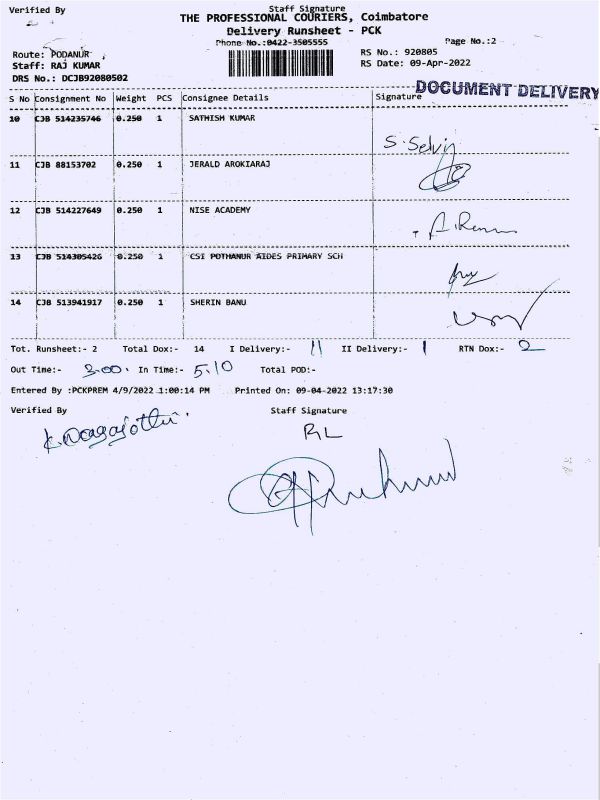 Verified By Staff Signature
THE PROFESSIONAL COURIERS, Coimbatore
Delivery Runsheet - PCK
Phone No.:0422-3505555 Page No.:2
Route: PODANUR RS No.: 920805
Staff: RAJ KUMAR RS Date: 09-Apr-2022
DRS No.: DCJB92080502
DOCUMENT DELIVERY
S No Consignment No Weight PCS Consignee Details Signature
10 CJB 514235746 0.250 1 SATHISH KUMAR
S. Selvi
11 CJB 88153702 0.250 1 JERALD AROKIARAJ
12 CJB 514227649 0.250 1 NISE ACADEMY
13 CJB 514305426 0.250 1 CSI POTHANUR AIDES PRIMARY SCH
14 CJB 513941917 0.250 1 SHERIN BANU
Tot. Runsheet:- 2 Total Dox:- 14 I Delivery:- 11 II Delivery:- 1 RTN Dox:- 2
Out Time:- 3.00. In Time:- 5.10 Total POD:-
Entered By :PCKPREM 4/9/2022 1:00:14 PM Printed On: 09-04-2022 13:17:30
Verified By Staff Signature